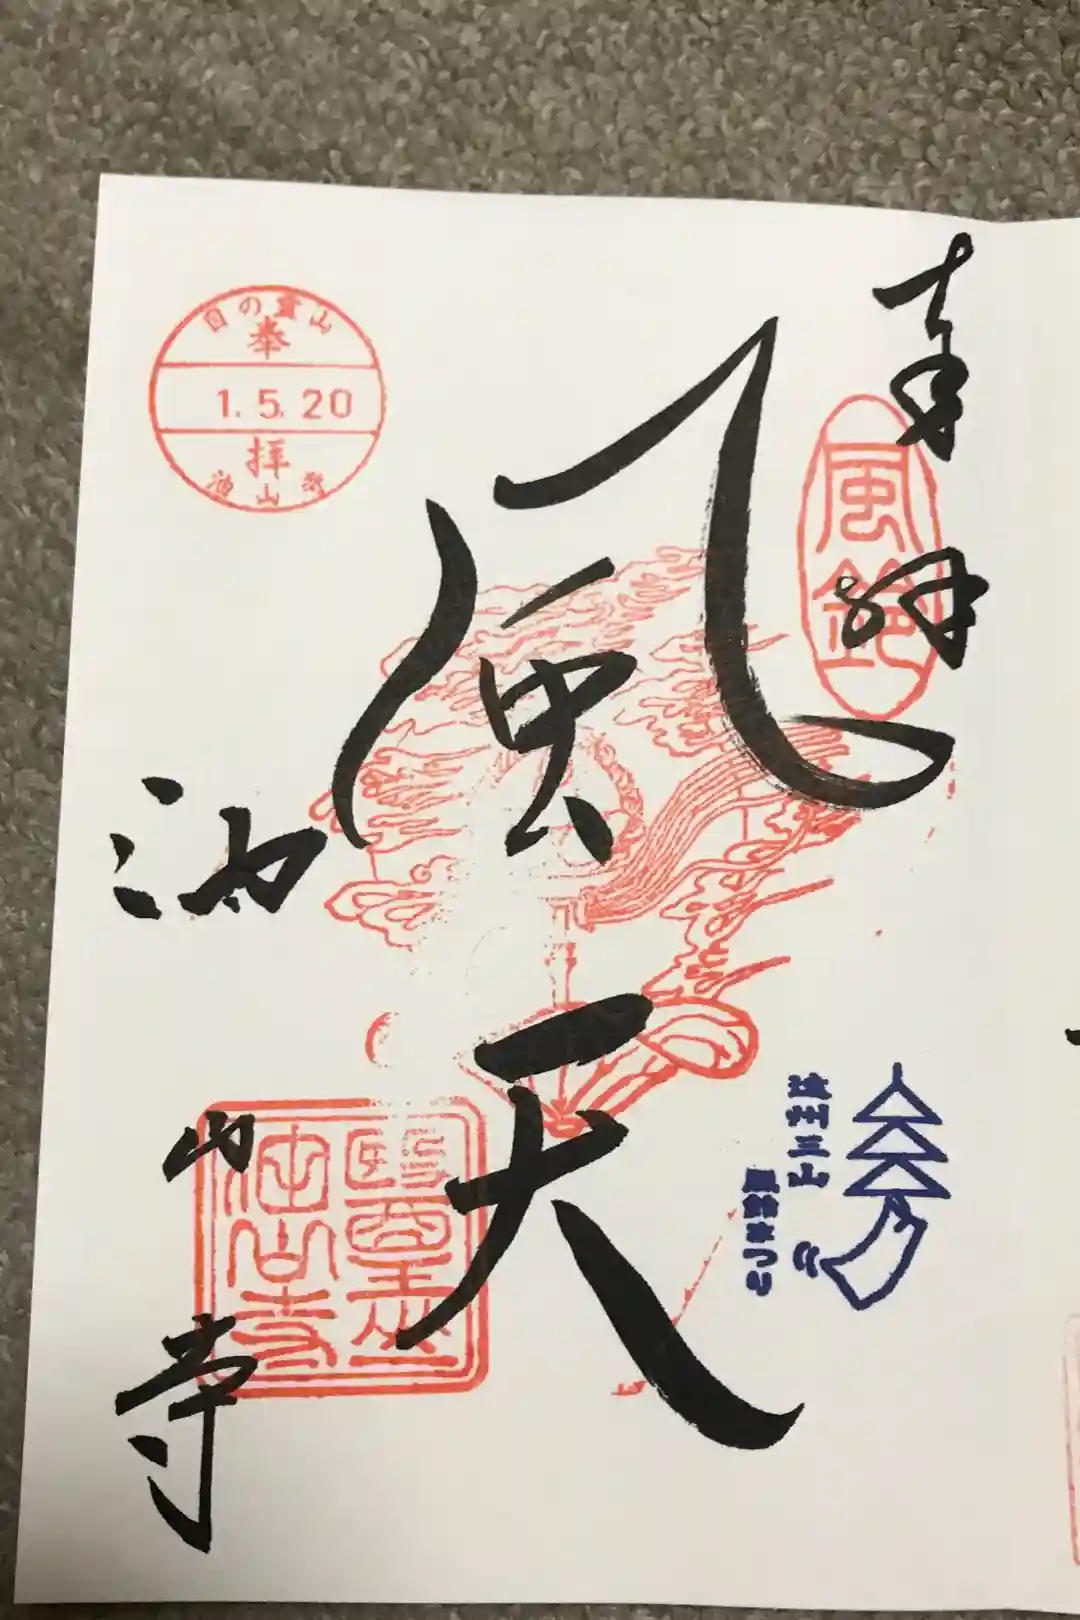 奉拝
風鈴
風天
遠州三山
風鈴まつり
目の霊山
奉
1.5.20
拝
油山寺
油山寺
醫王山
油山寺